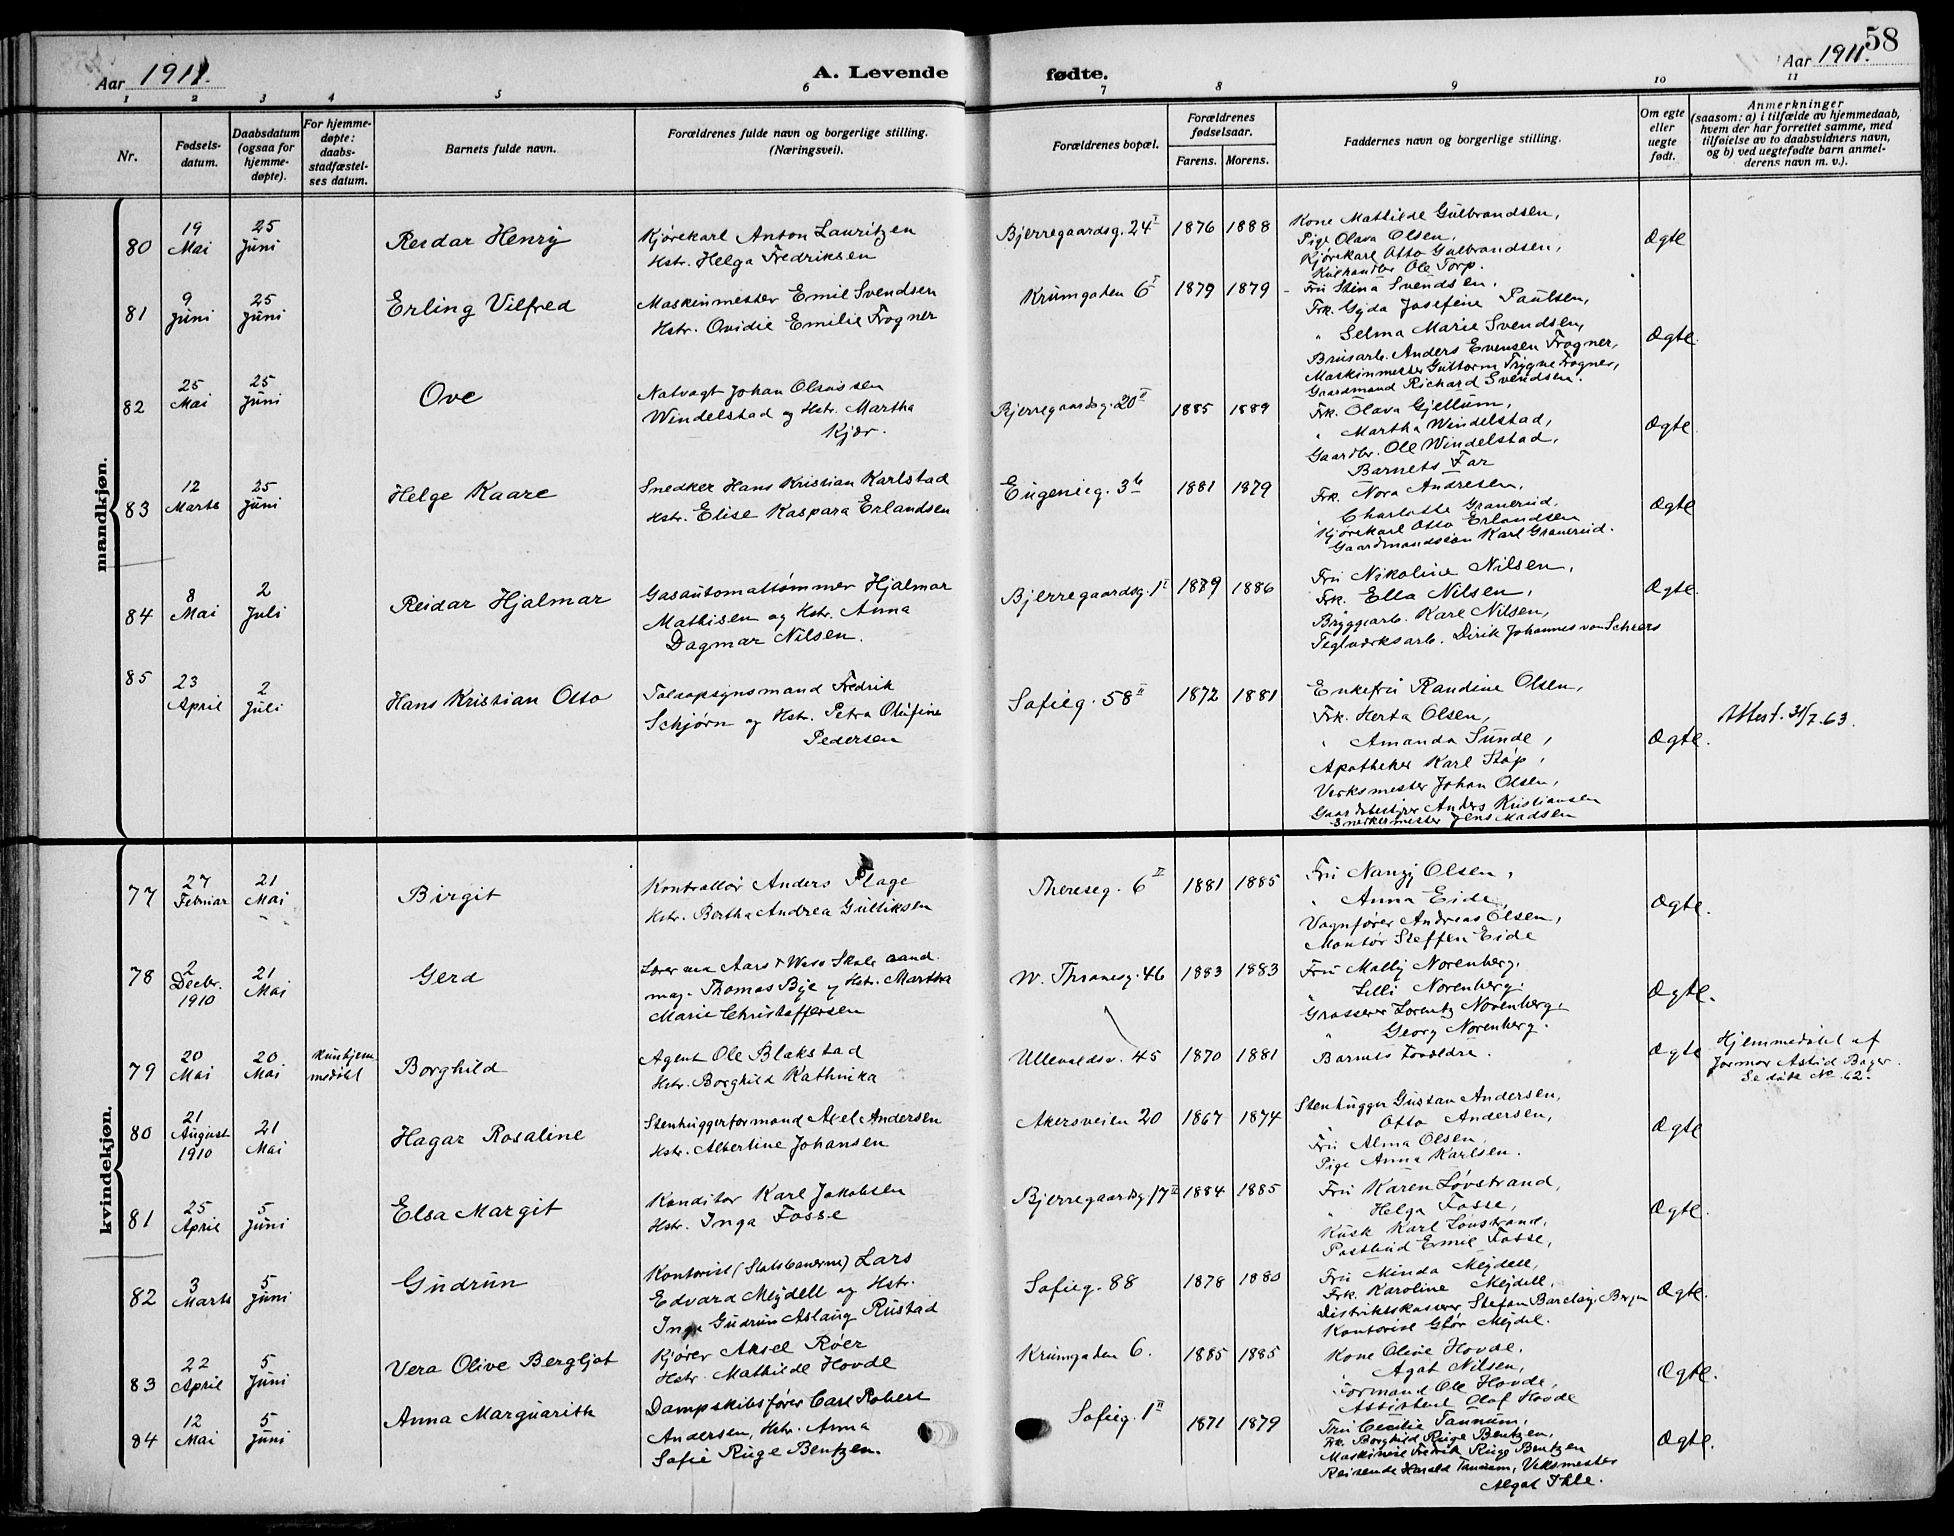 58
Aar 1911. A. Levende fødte. Aar 1911.
1 2 3 4 5 6 7 8 9 10 11
Nr.
Fødsels-
datum.
Daabsdatum
(ogsaa for
hjemme-
døpte).
For hjemme-
døpte:
daabs-
stadfæstel-
ses datum.
Barnets fulde navn.
Forældrenes fulde navn og borgerlige stilling.
(Næringsvei).
Forældrenes bopæl.
Forældrenes
fødselsaar.
Farens. Morens.
Faddernes navn og borgerlige stilling.
Om egte
eller
uegte
født.
Anmerkninger
(saasom: a) i tilfælde av hjemmedaab,
hvem der har forrettet samme, med
tilføielse av to daabsvidners navn,
og b) ved uegtefødte barn anmel-
derens navn m. v.).
mandkjøn.
80
19
Mai
25
Juni
Reidar Henry
Kjørekarl Anton Lauritzen
Hstr. Helga Fredriksen
Bjerregaardsg. 24 I
1876 1888
Kone Mathilde Gulbrandsen,
Pige Olava Olsen,
Kjørekarl Otto Gulbrandsen,
Kulhandler Ole Torp.
Ægte
81
9
Juni
25
Juni
Erling Vilfred
Maskinmester Emil Svendsen
Hstr. Ovidie Emilie Frogner
Krumgaden 6 I
1879 1879
Fru Stina Svendsen,
Frk. Gyda Josefine Paulsen,
" Selma Marie Svendsen,
Brusarb. Anders Evensen Frogner,
Maskinmester Guttorm Trygve Frogner,
Gaardmand Richard Svendsen.
Ægte
82
25
Mai
25
Juni
Ove
Natvagt Johan Olavssen
Windelstad og Hstr. Martha
Kjær.
Bjerregaardsg. 20 II
1885 1889
Frk. Olava Gjellum,
" Martha Windelstad,
Gaardbr. Ole Windelstad,
Barnets Far
Ægte
83
12
Marts
25
Juni
Helge Kaare
Snedker Hans Kristian Karlstad
Hstr. Elise Kaspara Erlandsen
Eugenieg. 3 b
1881 1879
Frk. Nora Andresen,
" Charlotte Granerud,
Kjørekarl Otto Erlandsen
Gaardmandsøn Karl Granerud.
Ægte
84
8
Mai
2
Juli
Reidar Hjalmar
Gasautomattømmer Hjalmar
Mathisen og Hstr. Anna
Dagmar Nilsen.
Bjerregaardsg. 1 I
1889 1886
Fru Nikoline Nilsen,
Frk. Ella Nilsen,
Bryggearb. Karl Nilsen,
Teglværksarb. Dirik Johannes van Scheers
Ægte
85
23
April
2
Juli
Hans Kristian Otto
Toldopsynsmand Fredrik
Schjørn og Hstr. Petra Olufine
Pedersen
Sofieg. 58 II
1872 1881
Enkefru Randine Olsen,
Frk. Herta Olsen,
" Amanda Sunde,
Apotheker Karl Støp,
Verksmester Johan Olsen,
Gaardbestyrer Anders Kristiansen
Snedkermester Jens Madsen
Ægte.
Attest. 31/7.63.
kvindekjøn.
77
27
Februar
21
Mai
Birgit
Kontrollør Anders Hage
Hstr. Bertha Andrea Gulliksen
Thereseg. 6 II
1881 1885
Fru Nancy Olsen,
" Anna Eide,
Vognfører Andreas Olsen,
Montør Steffen Eide
Ægte.
78
2
Decbr.
1910
21
Mai
Gerd
Lærer ved Aars & Voss Skole cand.
mag. Thomas Bye og Hstr. Martha
Marie Christoffersen
W. Thranesg. 46
1883 1883
Fru Mally Norenberg,
" Lilli Norenberg,
Grosserer Lorentz Norenberg,
" Georg Norenberg.
Ægte.
79
20
Mai
20
Mai
kun hjem-
medøbt
Borghild
Agent Ole Blakstad
Hstr. Borghild Kathinka
Ullevoldsv. 45
1870 1881
Barnets Forældre.
Ægte
Hjemmedøbt af
Jormor Astrid Bager.
Se døde No 62.
80
21
August
1910
21
Mai
Hagar Rosaline
Stenhuggerformand Axel Andersen
Hstr. Albertine Johansen
Akersveien 20
1867 1874
Stenhugger Gustav Andersen,
" Otto Andersen,
Fru Alma Olsen,
Pige Anna Karlsen.
Ægte
81
25
April
5
Juni
Elsa Margit
Konditor Karl Jakobsen
Hstr. Inga Fosse
Bjerregaardsg. 17 II
1884 1885
Fru Karen Løvstrand,
" Helga Fosse,
Kusk Karl Løvstrand,
Postbud Emil Fosse,
Ægte.
82
3
Marts
5
Juni
Gudrun
Kontorist (Statsbanerne) Lars
Edvard Mejdell og Hstr.
Inga Gudrun Aslaug Rustad
Sofieg. 88
1878 1880
Fru Minda Mejdell,
Frk. Karoline Mejdell,
Distriktskasserer Stefan Barclay, Bergen
Kontorist Glør Mejdel.
Ægte.
83
22
April
5
Juni
Vera Olive Bergljot
Kjører Aksel Röer
Hstr. Mathilde Hovde
Krumgaden 6.
1885 1885
Kone Oline Hovde,
" Agot Nilsen,
Formand Ole Hovde,
Assistent Olaf Hovde
Ægte.
84
12
Mai
5
Juni
Anna Marguarith
Dampskibsfører Carl Robert
Andersen, Hstr. Anna
Sofie Ruge Bentzen.
Sofieg. 1 II
1871 1879
Fru Cecilie Tannum,
Frk. Borghild Ruge Bentzen,
Maskinist Fredrik Ruge Bentzen
Reisende Harald Tannum, Verksmester
Algot Ihle.
Ægte.